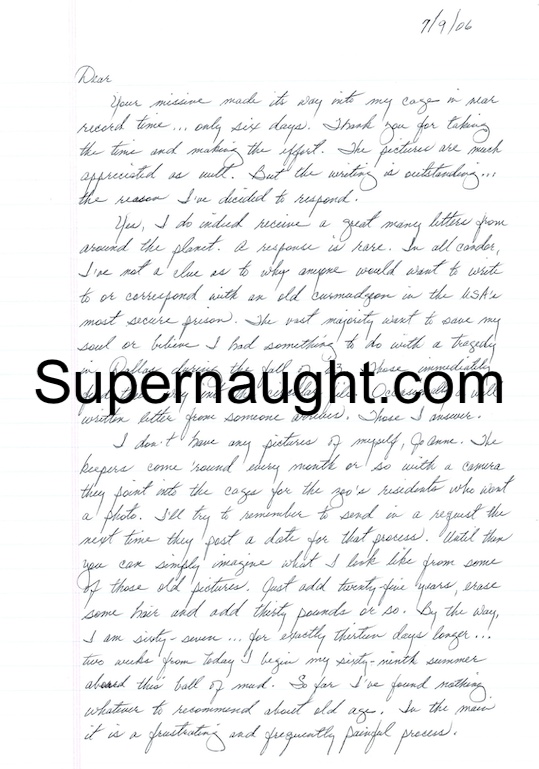 7/9/06
Dear
Your missive made its way into my cage in near
record time... only six days. Thank you for taking
the time and making the effort. The pictures are much
appreciated as well. But the writing is outstanding...
the reason I've decided to respond.
Yes, I do indeed receive a great many letters from
around the planet. A response is rare. In all candor,
I've not a clue as to why anyone would want to write
to or correspond with an old curmudgeon in the USA's
most secure prison. The vast majority want to save my
soul or believe I had something to do with a tragedy
in Dallas during the fall of '63. Those immediately
Supernaught.com
written letter from someone arrives. Those I answer.
I don't have any pictures of myself, Joanne. The
keepers come 'round every month or so with a camera
they point into the cages for the zoo's residents who want
a photo. I'll try to remember to send in a request the
next time they post a date for that process. Until then
you can simply imagine what I look like from some
of those old pictures. Just add twenty-five years, erase
some hair and add thirty pounds or so. By the way,
I am sixty-seven... for exactly thirteen days longer...
two weeks from today I begin my sixty-ninth summer
aboard this ball of mud. So far I've found nothing
whatever to recommend about old age. In the main
it is a frustrating and frequently painful process.